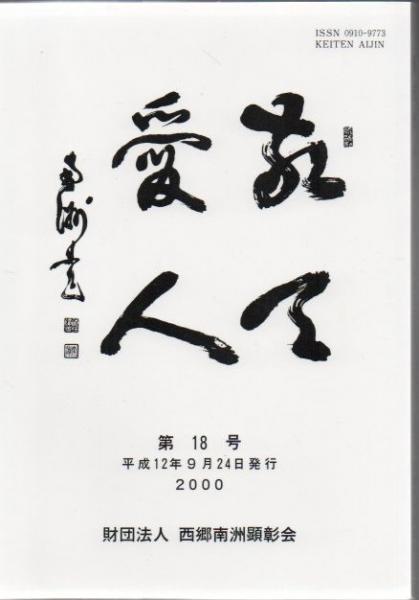 ISSN 0910-9773
KEITEN AIJIN
敬天
愛人
南洲書
第 18 号
平成12年9月24日発行
2000
財団法人 西郷南洲顕彰会